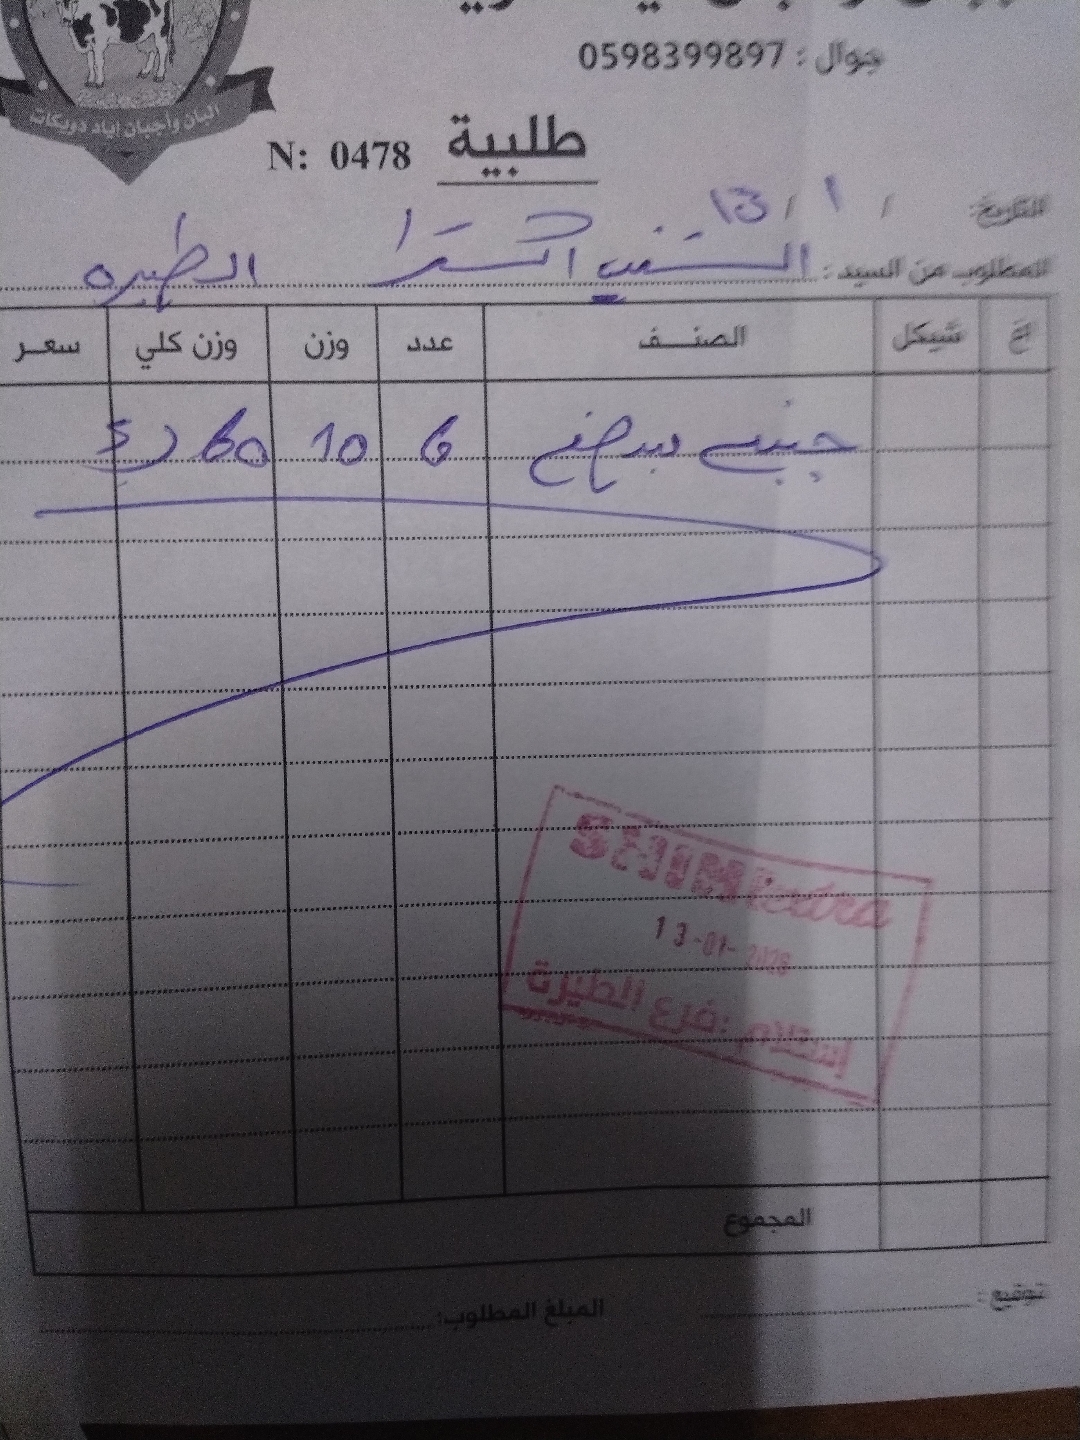 جوال : 0598399897
البان وأجبان إياد دويكات
طلبية N: 0478
التاريخ: / 1 / 13
المطلوب من السيد : الشني اكسترا الطيره
اغ شيكل الصنف عدد وزن وزن كلي سعر
جبنه بيضه 6 10 60
SHINI extra
13-01-2026
إستلام :فرع الطيرة
المجموع
توقيع : المبلغ المطلوب: